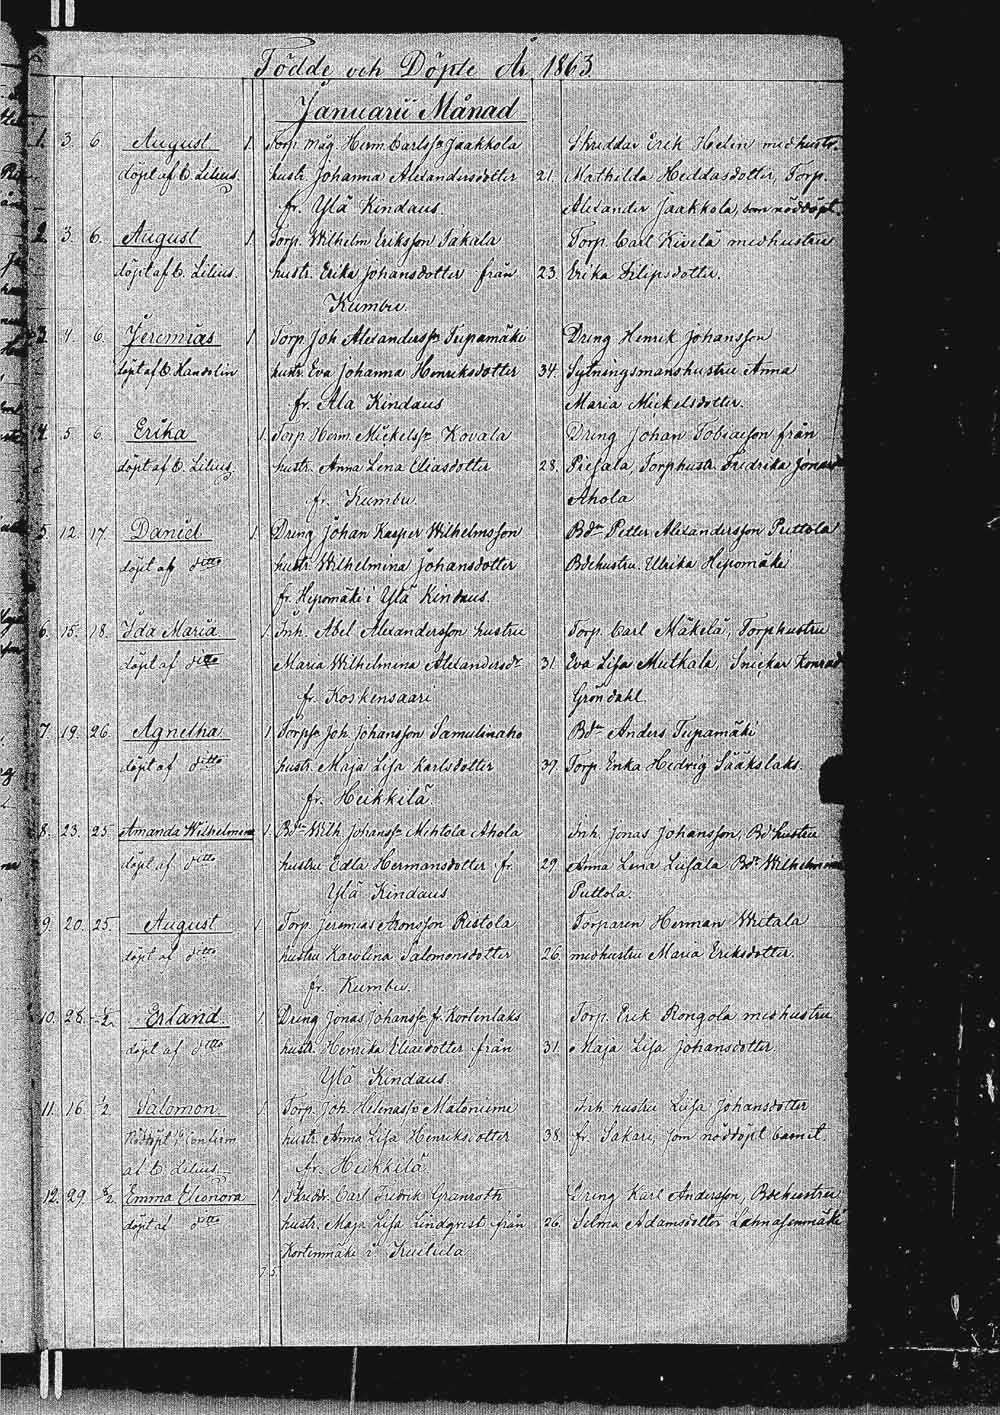 Födde och Döpte År 1863.
Januarii Månad
1. 3. 6. August 1. Torp. måg. Herm. Carlsson Jaakkola Skreddar Erik Helin med hustr.
döpt af C. Lilius. hustr. Johanna Alexandersdotter 21. Mathilda Heddasdotter, Torp.
fr. Ylä Kindaus. Alexander Jaakkola, som nöddöpt.
2. 3. 6. August 1. Torp. Wilhelm Eriksson Sakala Torp. Carl Kivelä med hustru
döpt af C. Lilius. hustr. Erika Johansdotter från 23. Erika Filipsdotter.
Kumbu.
3. 4. 6. Jeremias 1. Torp. Joh. Alexanderss. Tupamäki Dreng Henrik Johansson
döpt af C. Randelin hustr. Eva Johanna Henriksdotter 34. Sytningsmanshustru Anna
fr. Ala Kindaus Maria Mickelsdotter.
4. 5. 6. Erika 1. Torp. Herm. Mickelss. Kovala Dreng Johan Tobiasson från
döpt af C. Lilius hustr. Anna Lena Eliasdotter 28. Torphustr. Fredrika
fr. Kumbu. Ahola
5. 12. 17. Daniel 1. Dreng Johan Kasper Wilhelmsson Bdn Petter Alexandersson Puttola
döpt af ditto hustr. Wilhelmina Johansdotter Bdehustru Ulrika Hepomäki
fr. Hepomäki i Ylä Kindaus.
6. 15. 18. Ida Maria 1. Inh. Abel Alexandersson hustru Torp. Carl Mäkelä, Torphustru
döpt af ditto Maria Wilhelmina Alexandersdr 31. Eva Lisa Mutkala, Snickar Konrad
fr. Koskensaari Gröndahl.
7. 19. 26. Agnetha 1. Joh. Johansson Samulinaho Bdn Anders Tupamäki
döpt af ditto hustr. Maja Lisa Karlsdotter 39. Torp. Enka Hedvig Sääkslaks.
fr. Heikkilä.
8. 23. 25. Amanda Wilhelmina 1. Bdn Wilh. Johanss. Mehtola Ahola Inh. Jonas Johansson, Bdhustru
döpt af ditto hustru Edla Hermansdotter fr. 29. Anna Lena Bdr Wilhelmina
Ylä Kindaus Puttola.
9. 20. 25. August 1. Torp. Jeremias Aronsson Ristola Torparen Herman
döpt af ditto hustru Karolina Salomonsdotter 26. med hustru Maria Eriksdotter.
fr. Kumbu.
10. 28. Erland. 1. Dreng Jonas Johanss. fr. Kortenlaks Torp. Erik Rongola med hustru
döpt af ditto hustr. Henrika Eliaedotter från 31. Maja Lisa Johansdotter.
Ylä Kindaus.
11. 16. 1/2 Salomon 1. Torp. Joh. Helenass. Matoniemi Inh. hustru Lisa Johansdotter
Nöddöpt o Confirm hustr. Anna Lisa Henriksdotter 38. fr. Sakari, som nöddöpt barnet.
af C. Lilius fr. Heikkilä.
12. 29. Emma Eleonora 1. Skredd. Carl Fredrik Granroth Dreng Karl Andersson, Bdehustru
döpt af ditto hustr. Maja Lisa Lindqvist från 26. Selma Adamsdotter Lahnasenmäki
Kortenmäki i
7.5.